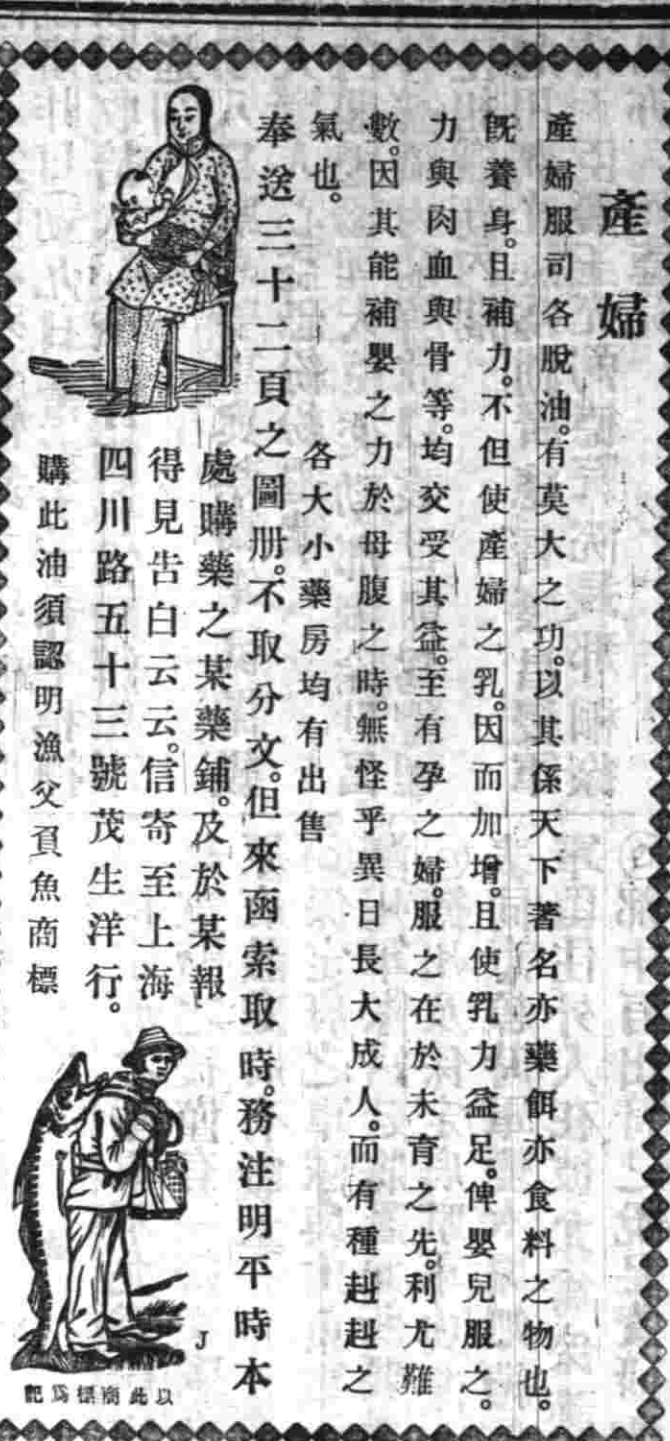 產婦
產婦服司各脫油。有莫大之功。以其係天下著名亦藥餌亦食料之物也。
旣養身。且補力。不但使產婦之乳。因而加增。且使乳力益足。俾嬰兒服之。
力與肉血與骨等。均交受其益。至有孕之婦。服之在於未育之先。利尤難
數。因其能補嬰之力於母腹之時。無怪乎異日長大成人。而有種赳赳之
氣也。
各大小藥房均有出售
奉送三十二頁之圖册。不取分文。但來函索取時。務注明平時本
處購藥之某藥鋪。及於某報
得見告白云云。信寄至上海
四川路五十三號茂生洋行。
購此油須認明漁父負魚商標
J
以此商標爲記